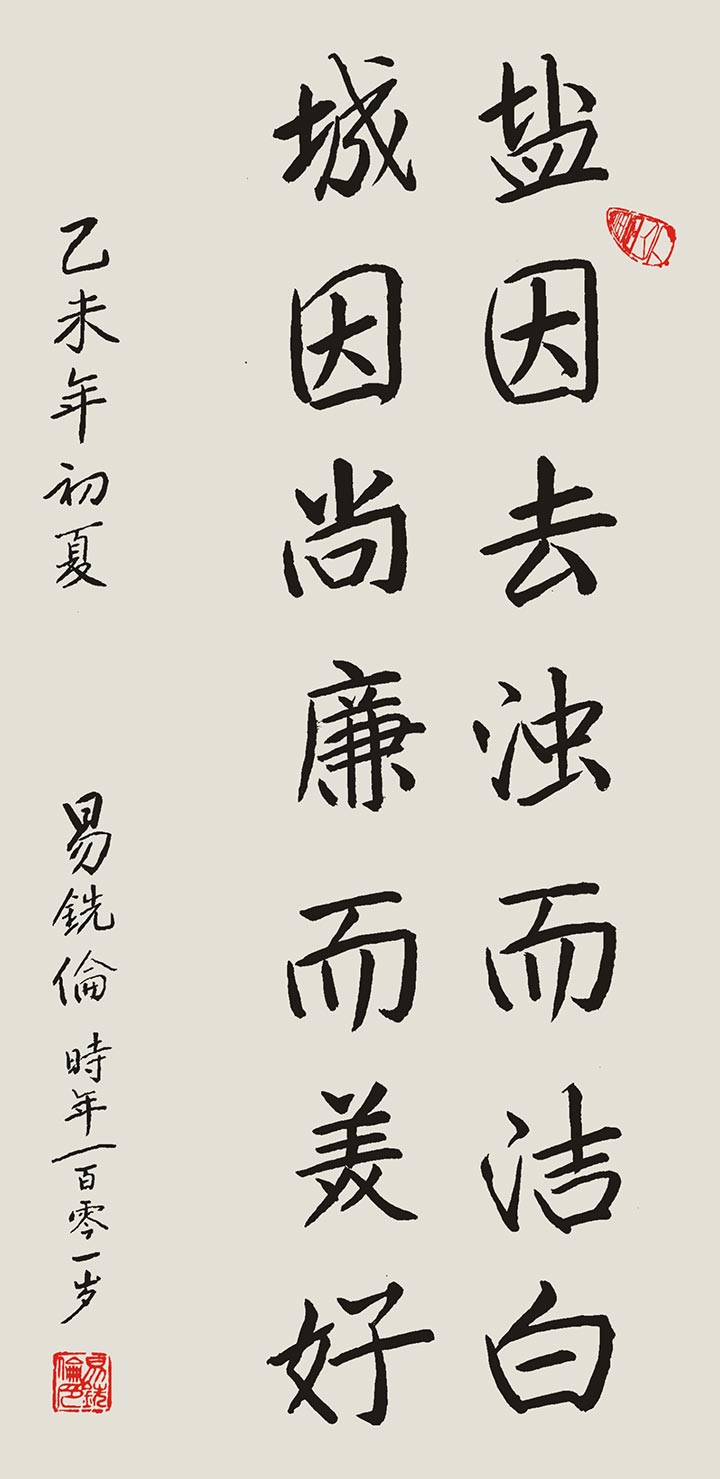 盐因去浊而洁白
城因尚廉而美好
乙未年初夏
易銑倫時年一百零一岁
易銑倫